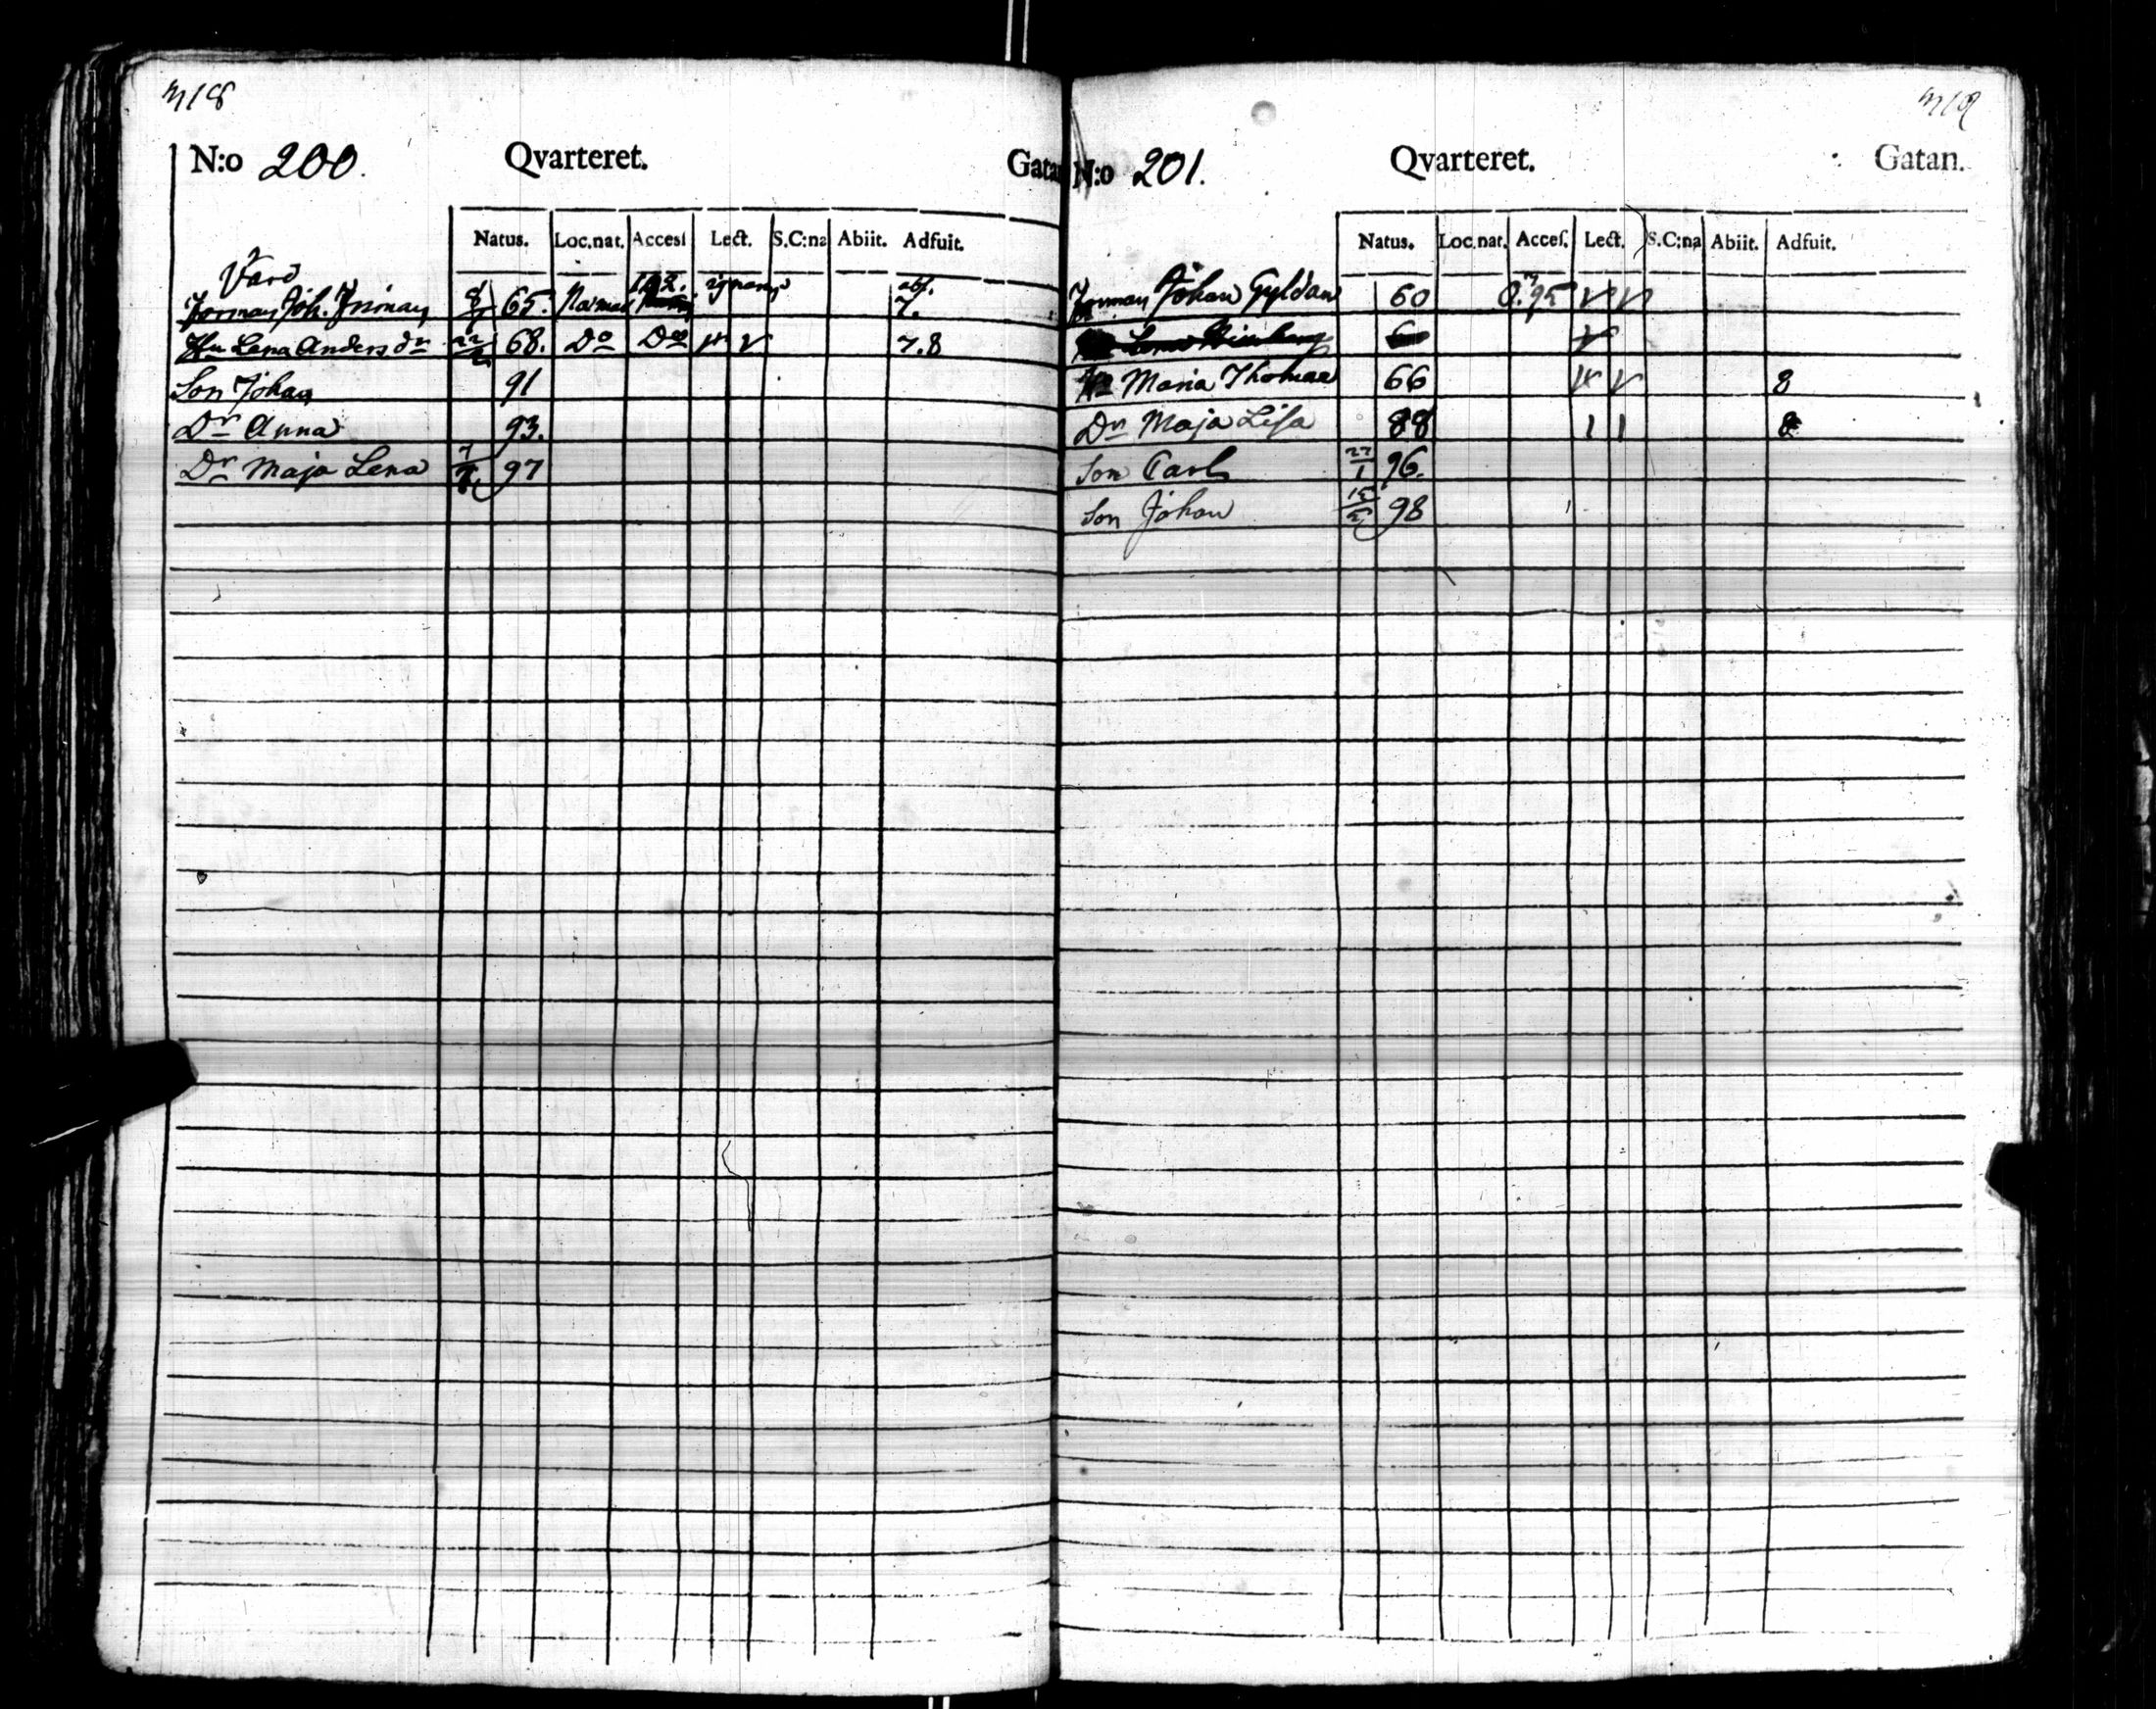 318
N:o 200. Qvarteret. Gatan
Natus. Loc.nat. Accesſ Lect. S.C:na Abiit. Adfuit.
Vard
Joh. 65. 192. abſ. 7.
Hu Lena Anders dr 22/2 68. Do Do 7.8
Son Johan 91
Dr Anna 93.
Dr Maja Lena 97
319
N:o 201. Qvarteret. Gatan.
Natus. Loc.nat. Acceſ. Lect. S.C:na Abiit. Adfuit.
Johan Gyldan 60 95
Lena
Hu Maria Thomae 66 8
Dr Maja Liſa 88 8
Son Carl 22/1 96.
Son Johan 98